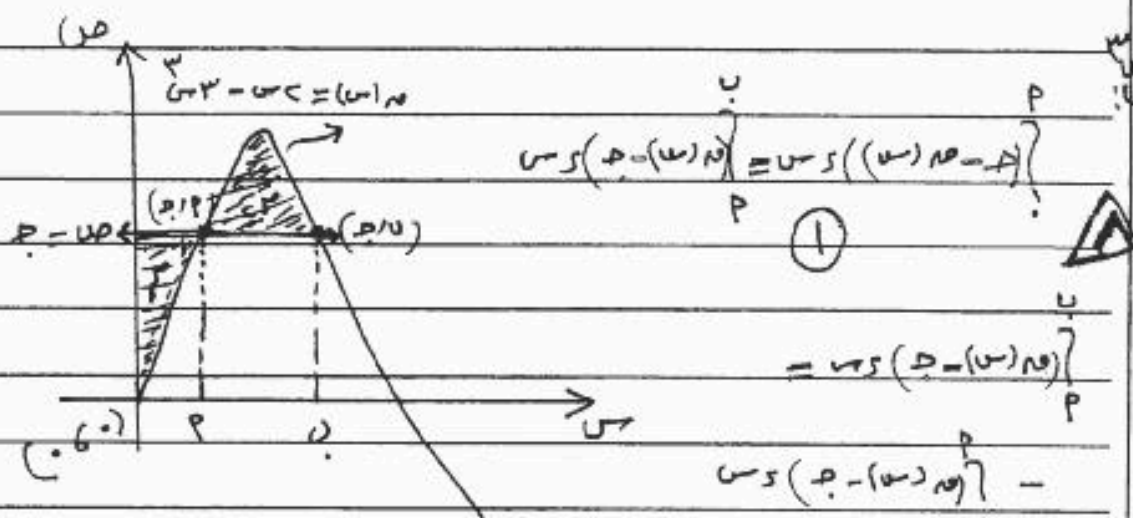 ص
ق(س) = ٢س - ٣س٣
ص = جـ
(أ، جـ)
(ب، جـ)
م١
م٢
(٠،٠)
أ
ب
س
∫₀^أ (جـ - ق(س)) ءس = ∫أ^ب (ق(س) - جـ) ءس
①
∫أ^ب (ق(س) - جـ) ءس =
- ∫^أ (ق(س) - جـ) ءس